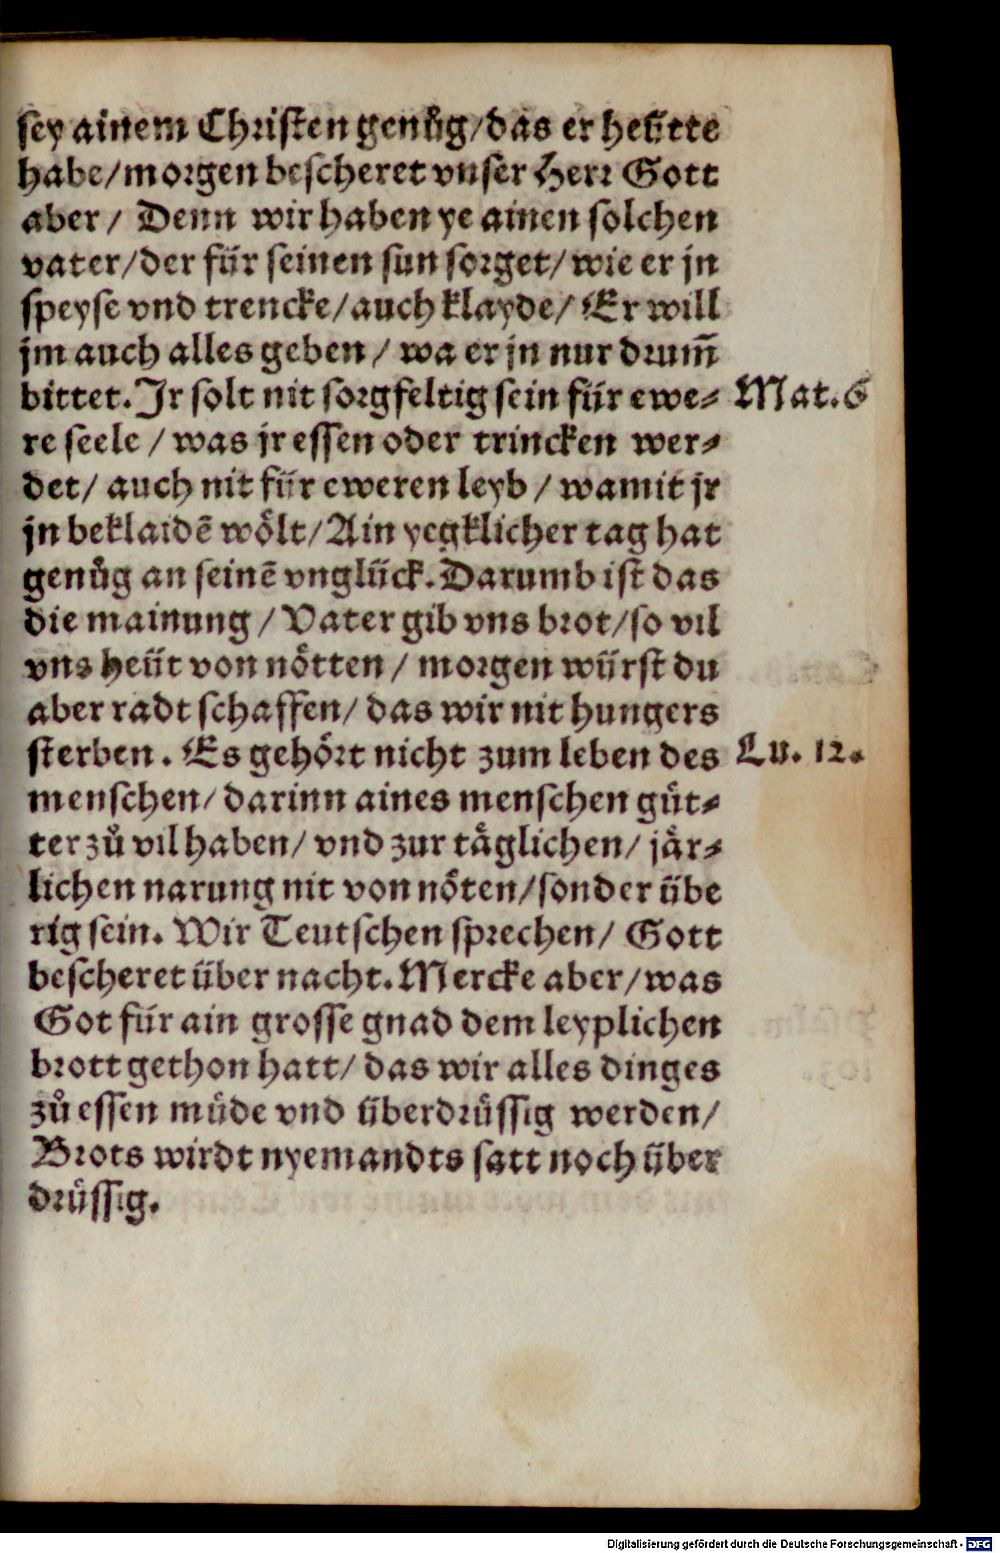 sey ainem Christen genůg/das er heütte
habe/morgen bescheret vnser Herr Gott
aber/ Denn wir haben ye ainen solchen
vater/der für seinen sun sorget/wie er jn
speyse vnd trencke/auch klayde/ Er will
jm auch alles geben/ wa er jn nur drum̄
bittet. Ir solt nit sorgfeltig sein für ewe⸗ Mat. 6
re seele/ was jr essen oder trincken wer⸗
det/ auch nit für eweren leyb/ wamit jr
jn beklaidē woͤlt/Ain yegklicher tag hat
genůg an seinē vnglück. Darumb ist das
die mainung/ Vater gib vns brot/so vil
vns heüt von noͤtten/ morgen würst du
aber radt schaffen/ das wir nit hungers
sterben. Es gehoͤrt nicht zum leben des Lu. 12.
menschen/ darinn aines menschen guͤt⸗
ter zů vil haben/ vnd zur taͤglichen/ jaͤr⸗
lichen narung nit von noͤten/sonder übe
rig sein. Wir Teutschen sprechen/ Gott
bescheret über nacht. Mercke aber/was
Got für ain grosse gnad dem leyplichen
brott gethon hatt/ das wir alles dinges
zů essen muͤde vnd überdruͤssig werden/
Brots wirdt nyemandts satt noch über
druͤssig.
Digitalisierung gefördert durch die Deutsche Forschungsgemeinschaft - DFG